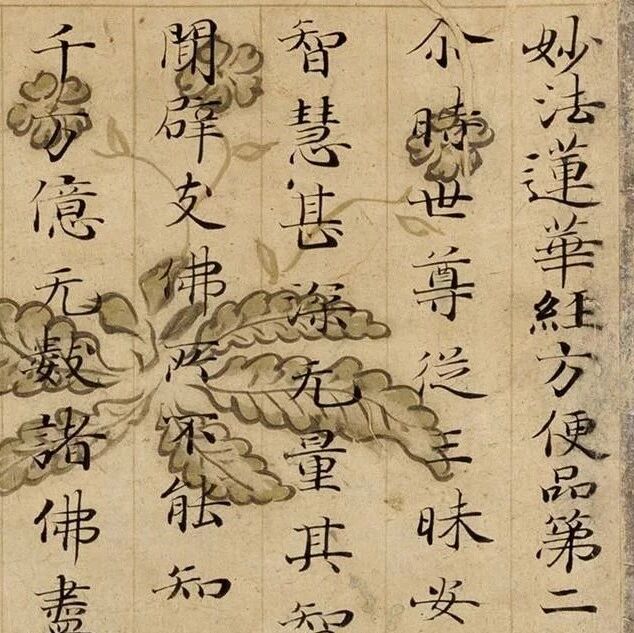 妙法蓮華經方便品第二
尒時世尊従三昧安
智慧甚深无量其智
聞辟支佛所不能知
千万億无數諸佛盡